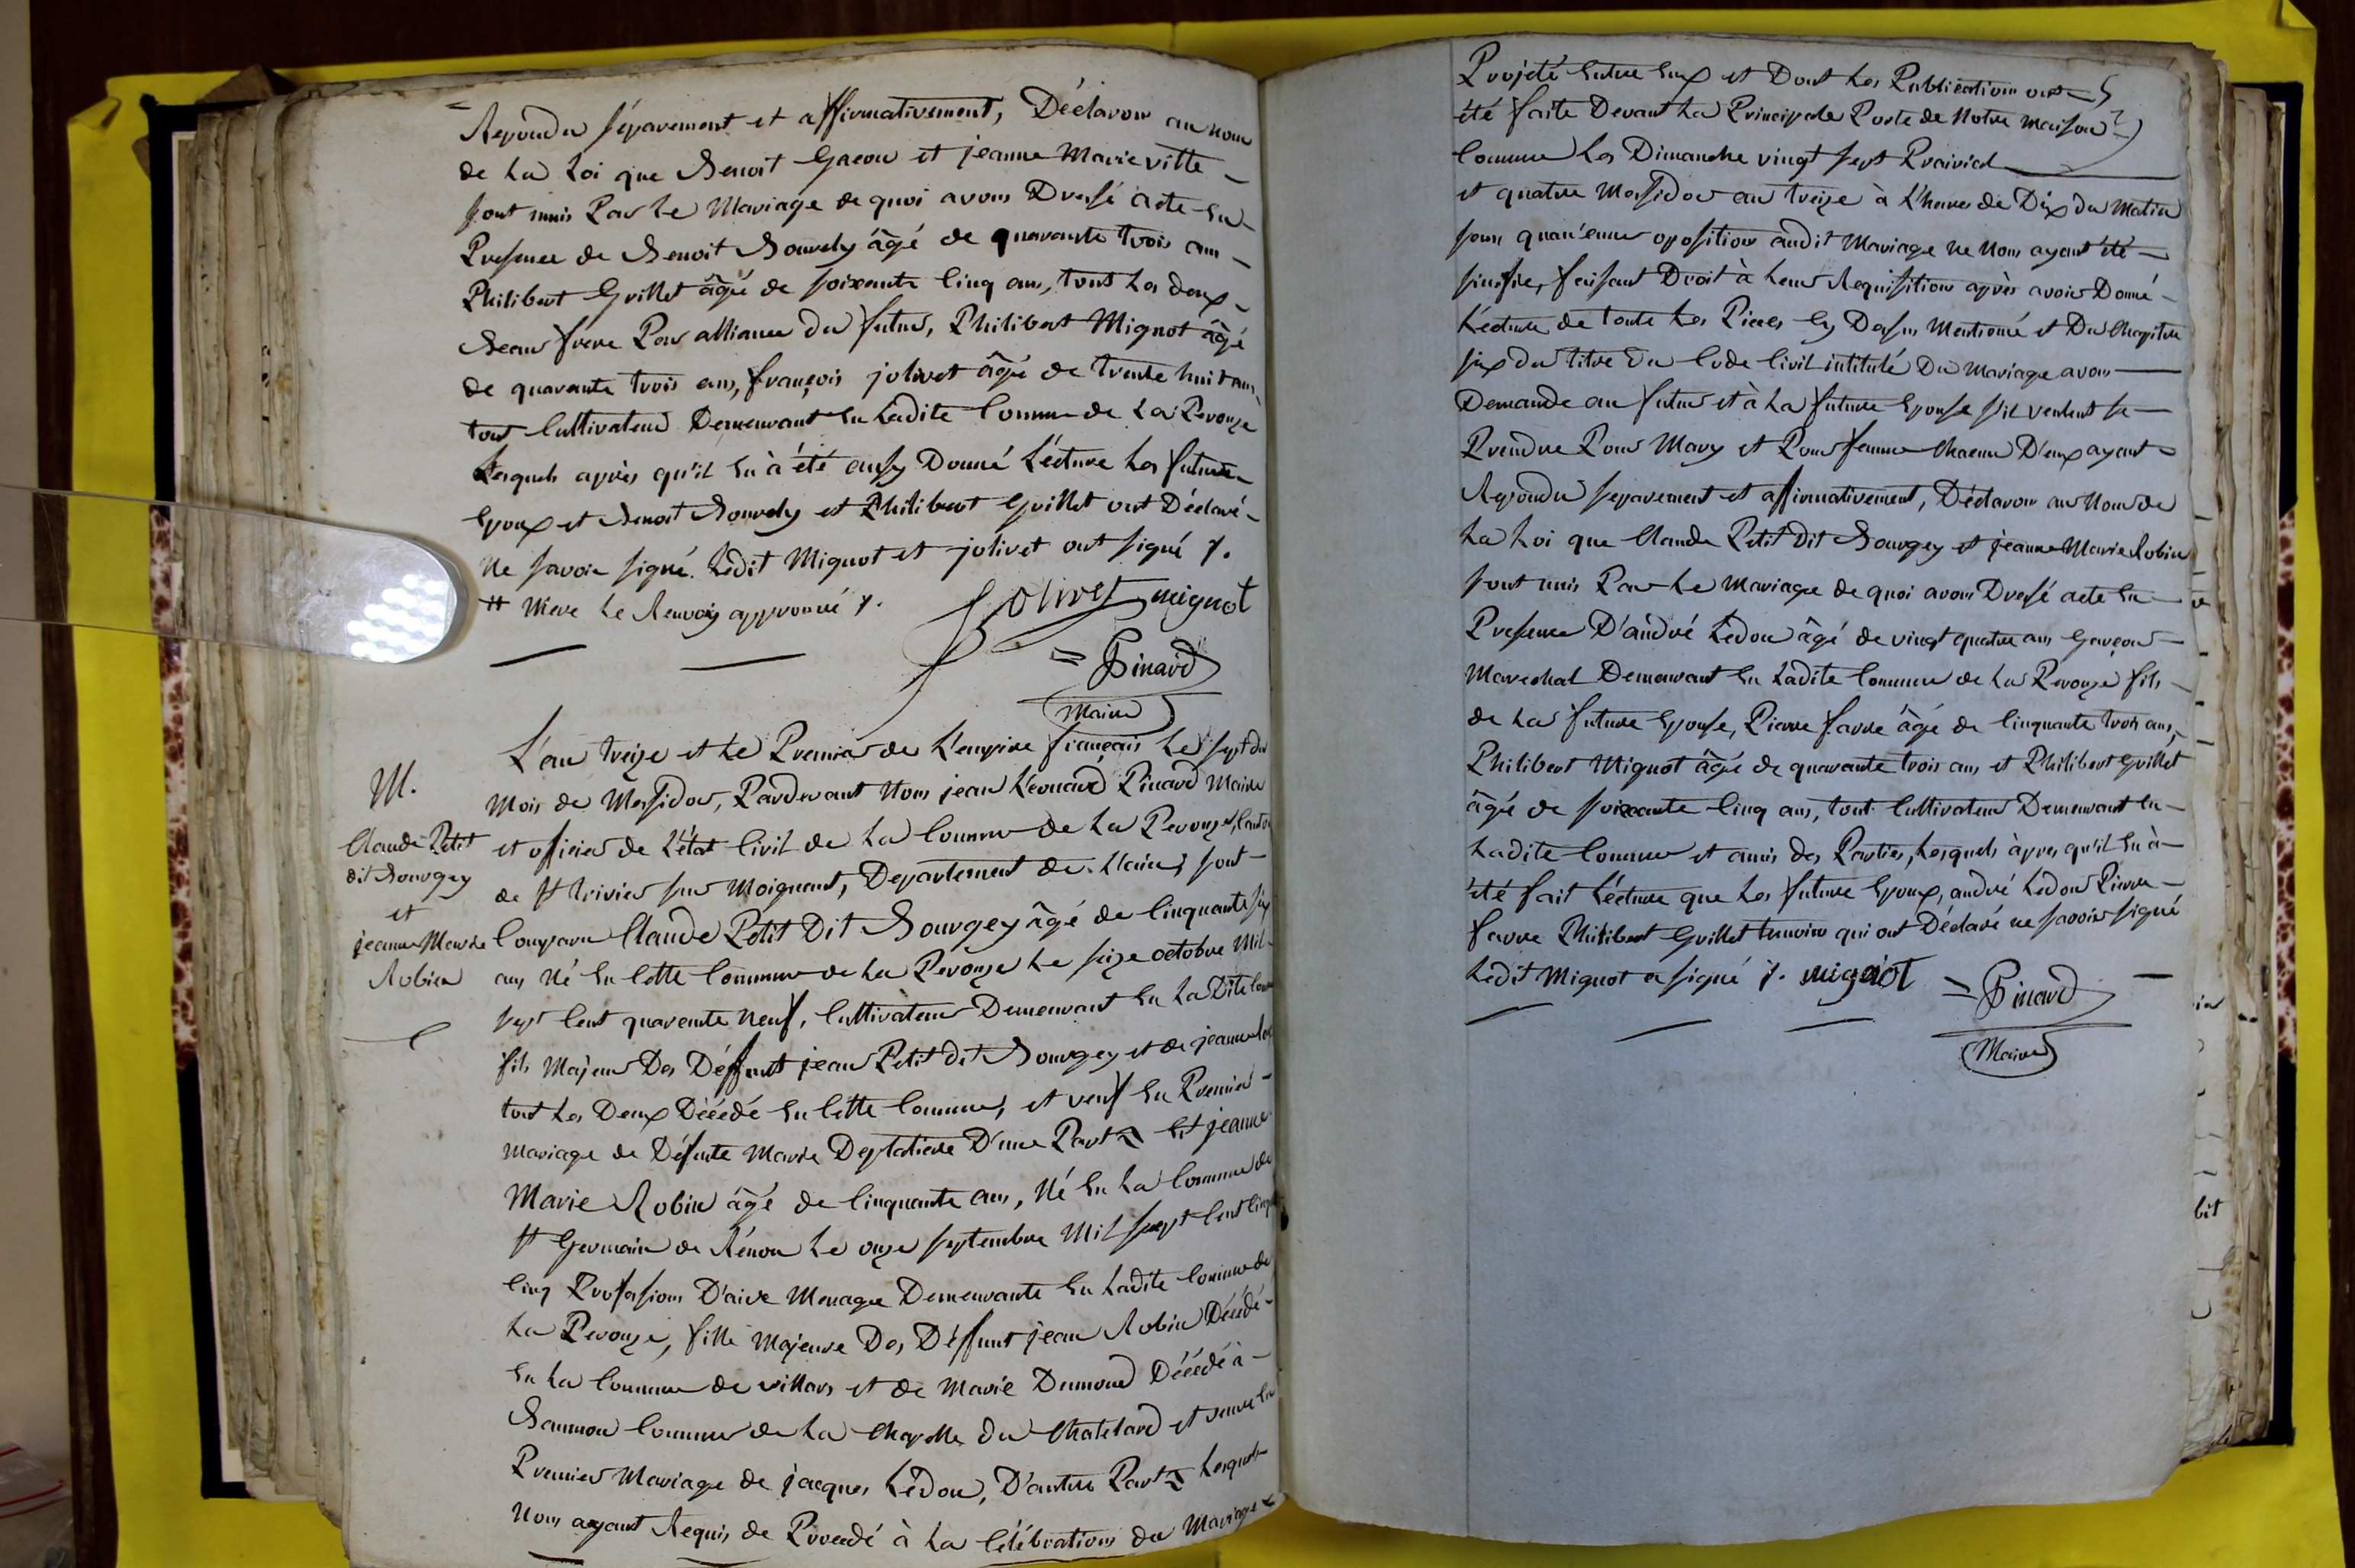 Repondu séparement et affirmativement, Déclarons au nom
de La Loi que Benoit Gacon et jeanne Marie vitte
sont unis Par Le Mariage de quoi avons Dressé acte En
Presence de Benoit Bourdy âgé de quarante trois ans
Philibert Grillet âgé de soixante Cinq ans, tous Les deux
Beau frere Par alliance du futur, Philibert Mignot âgé
de quarante trois ans, françois jolivet âgé de trente huit ans,
tous Cultivateur Demeurant En Ladite Commune de La Perouze
Lesquels après qu'il En à été aussy Donné Lécture Les future
Epoux et Benoit Bourdy et Philibert Grillet ont Déclaré
Ne savoir signé. Ledit Mignot et jolivet ont signé
# Mere Le Renvoy approuvé
Jolivet mignot
= Pinard
Maire
L'an treize et Le Premier de L'empire français Le sept du
M.
Mois de Messidor, Pardevant Nous jean Léonard Pinard Maire
Claude Petit
dit Bourgey
et
jeanne Marie
Robin
et officier de L'état Civil de La Commune de La Perouze, Canton
de St trivier sur Moignant, Departement de L'ain, sont
Comparu Claude Petit Dit Bourgey âgé de Cinquante six
ans Né En Cette Commune de La Perouze Le seize octobre Mil
sept Cent quarante Neuf, Cultivateur Demeurant En La Dite
fils Majeur Des Deffunt jean Petit dit Bourgey et de jeanne
tout Les Deux Décédé En Cette Commune, et veuf En Premier
Mariage de Défunte Marie Deplatiere D'une Part Et jeanne
Marie Robin âgé de Cinquante ans, Né En La Commune de
St Germain de Rénon Le onze septembre Mil sept Cent
Cinq Profession D'aide Menagee Demeurante En Ladite Commune de
La Perouze, fille Majeure Des Deffunt jean Robin Décédé
En La Commune de villars et de Marie Dumond Décédé à
Commune de La Chapelle Du Chatelard et veuve En
Premier Mariage de jacques Lédon, D'autre Part Lesquels
Nous ayant Requis de Procedé à La Célébration du Mariage
Projeté Entre Eux et Dont Les Publication ont
été faite Devant La Principale Porte de Notre Maison
Commune Les Dimanche vingt sept Prairial
et quatre Messidor an treize à L'heure de Dix du Matin
oposition audit Mariage ne Nous ayant été
sinifie, faisant Droit à Leur Requisition après avoir Donné
Lécture de toute Les Pieces Cy Desus Mentionné et Du Chapitre
six du titre du Code Civil intitulé Du Mariage avons
Demande au futur et à La future Epouse s'il veulent se
Prendre Pour Mary et Pour femme Chacun D'eux ayant
Repondu separement et affirmativement, Déclarons au Nom de
La Loi que Claude Petit Dit Bourgey et jeanne Marie Robin
sont unis Par Le Mariage de quoi avons Dressé acte En
Presence D'andré Ledon âgé de vingt quatre ans Garçon
Marechal Demeurant En Ladite Commune de La Perouze fils
de La future Epouse, Pierre favre âgé de Cinquante trois ans,
Philibert Mignot âgé de quarante trois ans et Philibert Grillet
âgé de soixante Cinq ans, tout Cultivateur Demeurant En
Ladite Commune et amis des Parties, Lesquels àpres qu'il En à
été fait Lécture que Les future Epoux, andré Ledon Pierre
favre Philibert Grillet temoins qui ont Déclaré ne savoir signé
Ledit Mignot a signé mignot
= Pinard
Maire